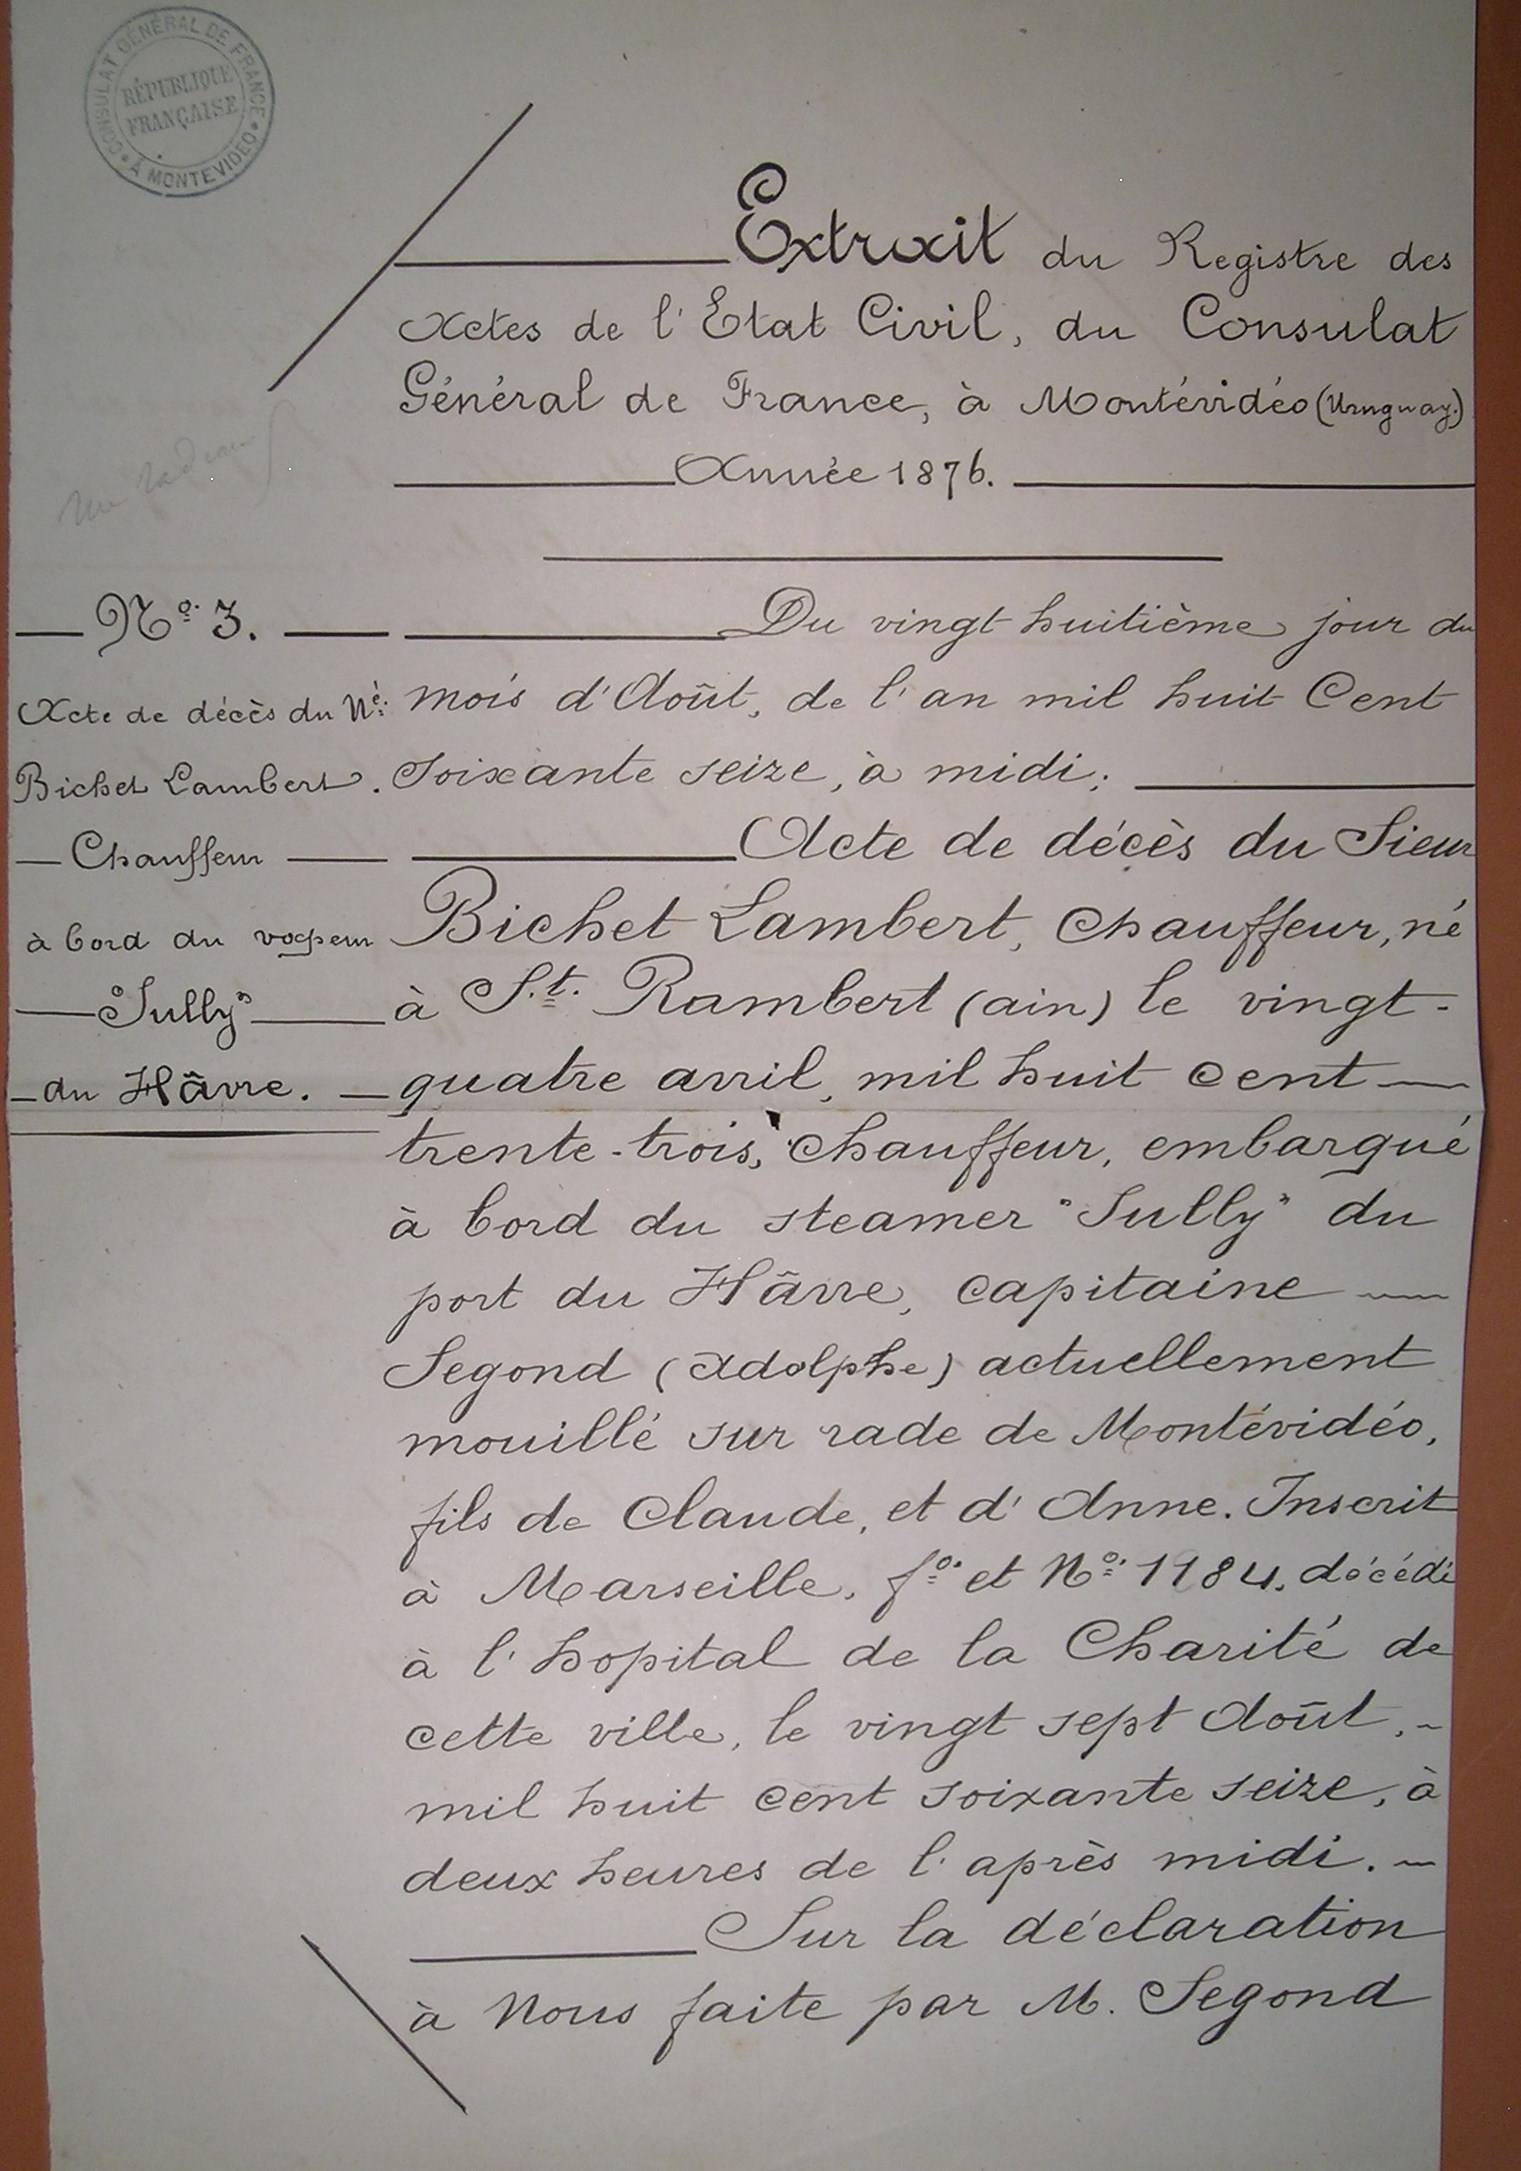 CONSULAT GÉNÉRAL DE FRANCE
À MONTEVIDEO
RÉPUBLIQUE
FRANÇAISE
Extrait du Registre des
Actes de l'Etat Civil, du Consulat
Général de France, à Montévidéo (Uruguay.)
Année 1876.
Nº. 3.
Acte de décès du Né:
Bichet Lambert.
Chauffeur
à bord du vapeur
"Sully"
du Hâvre.
Du vingt huitième jour du
mois d'Août, de l'an mil huit Cent
soixante seize, à midi;
Acte de décès du Sieur
Bichet Lambert, chauffeur, né
à St. Rambert (ain) le vingt-
quatre avril, mil huit cent
trente-trois, chauffeur, embarqué
à bord du steamer "Sully" du
port du Hâvre, capitaine
Segond (Adolphe) actuellement
mouillé sur rade de Montévidéo,
fils de Claude, et d'Anne. Inscrit
à Marseille, fº. et Nº. 1184. décédé
à l'hopital de la Charité de
cette ville, le vingt sept Août,
mil huit cent soixante seize, à
deux heures de l'après midi.
Sur la déclaration
à Nous faite par M. Segond